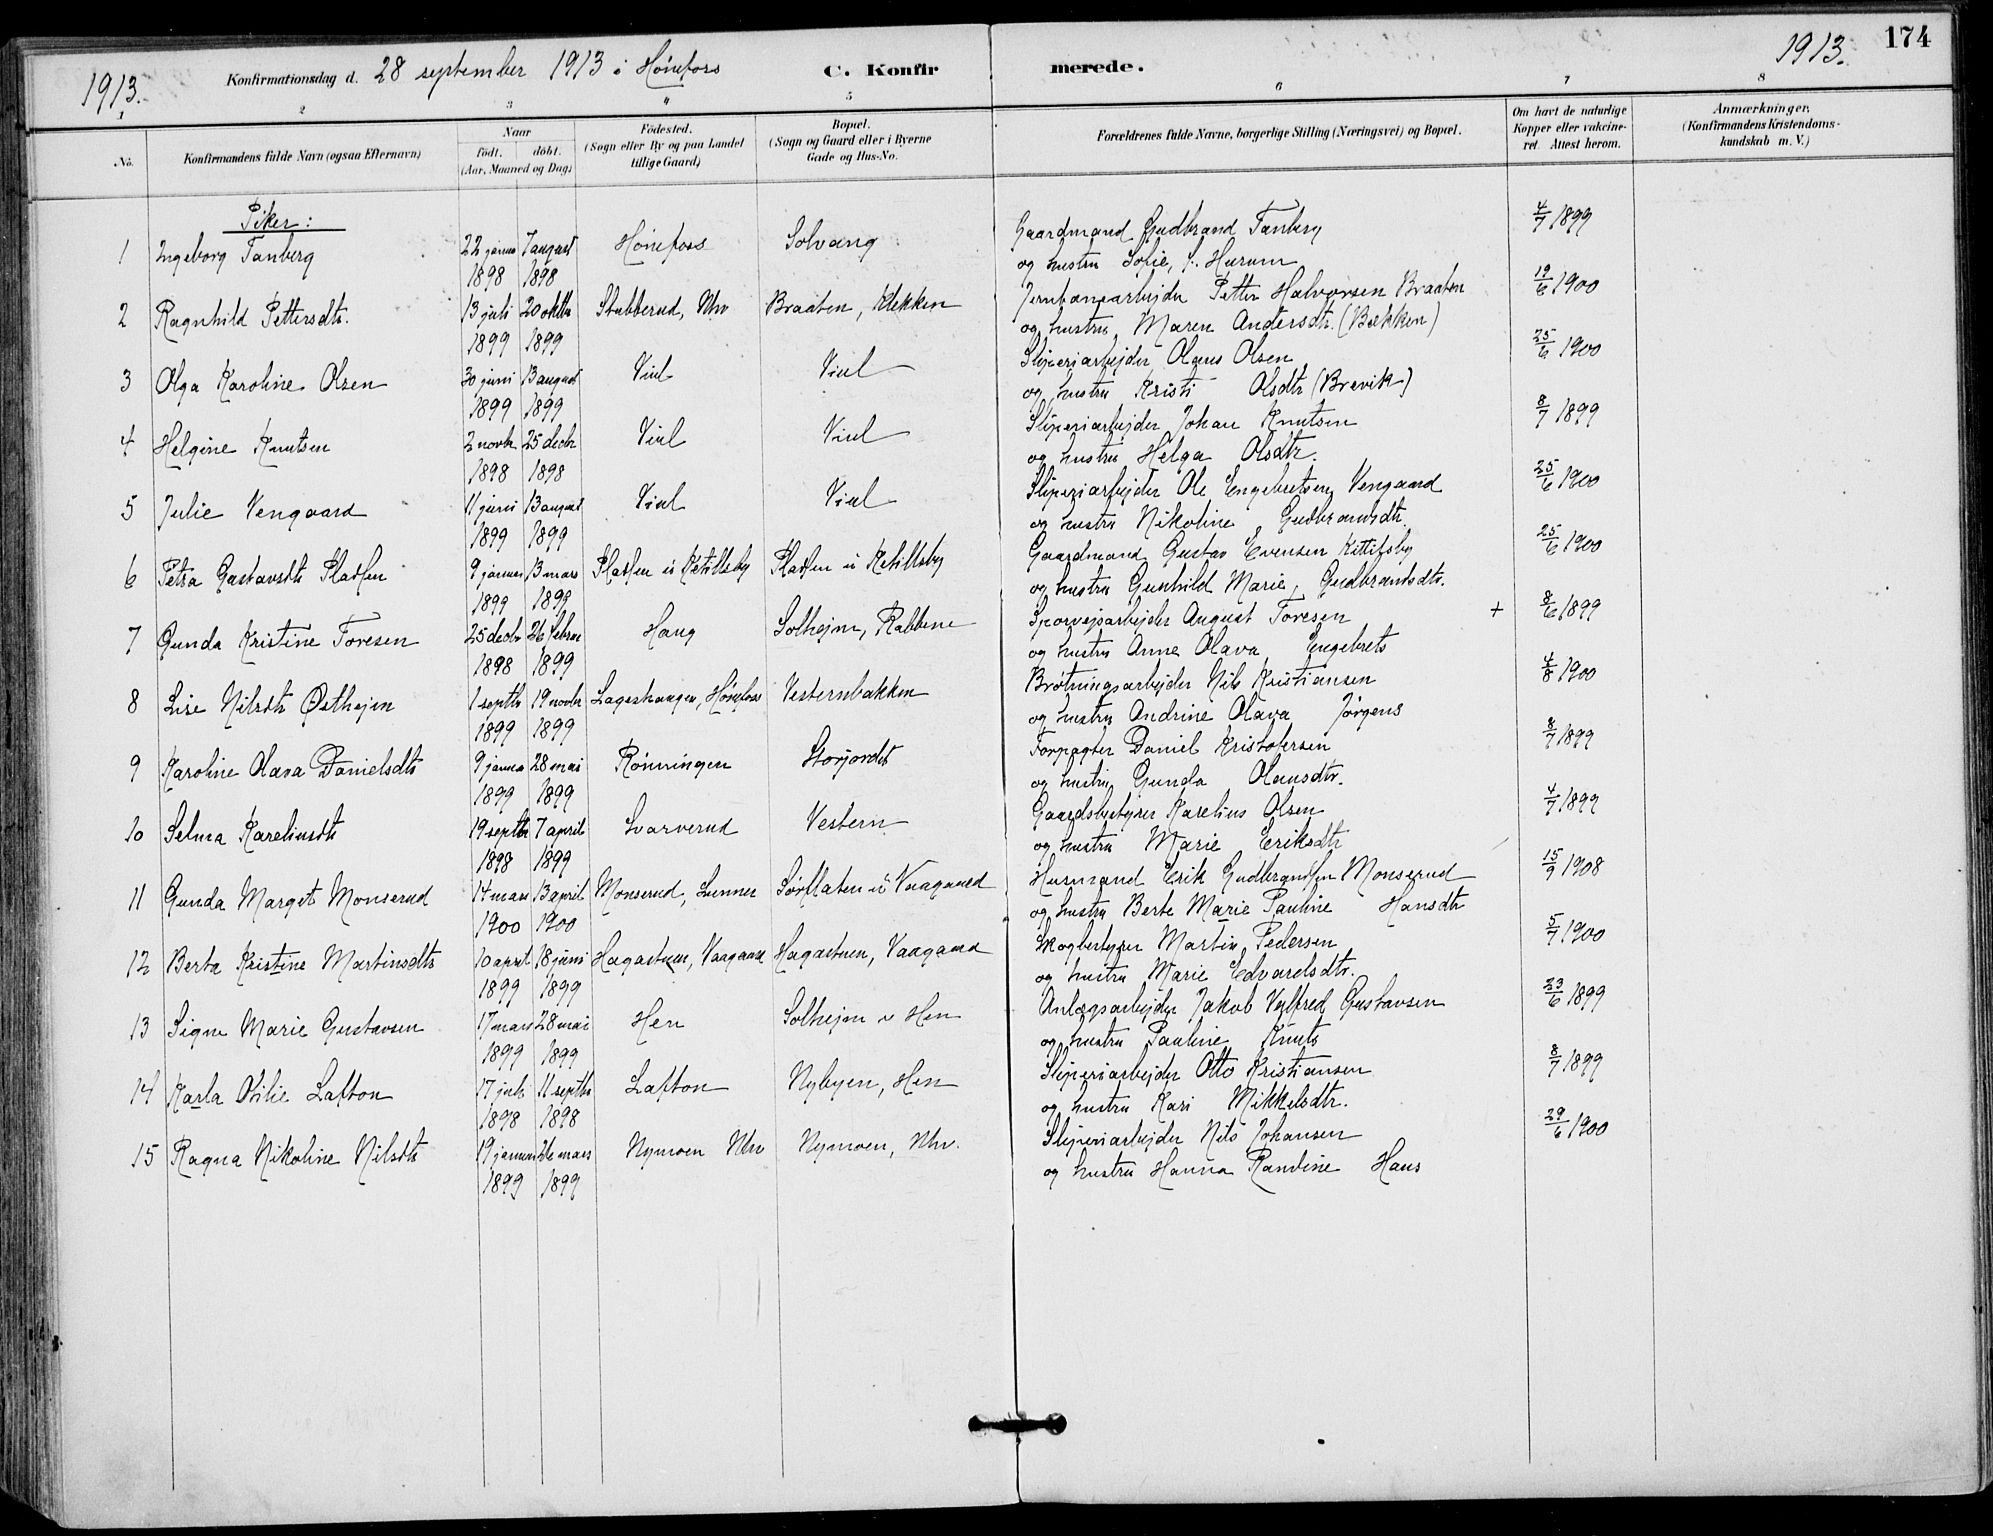 174
1913. Konfirmationsdag d. 28 september 1913 i Hönefoss C. Konfirmerede. 1913.
1 2 3 4 5 6 7 8
No. Konfirmandens fulde Navn (ogsaa Efternavn) Naar födt. döbt. (Aar, Maaned og Dag) Födested. (Sogn eller By og paa Landet tillige Gaard) Bopæl. (Sogn og Gaard eller i Byerne Gade og Hus-No. Forældrenes fulde Navne, borgerlige Stilling (Næringsvei) og Bopæl. Om havt de naturlige Kopper eller vakcineret. Attest herom. Anmærkninger. (Konfirmandens Kristendomskundskab m. V.)
Piker:
1 Ingeborg Tanberg 22 januar 7 august Hönefoss Solvang Gaardmand Gudbrand Tanberg 4/7 1899
1898 1898 og hustru Sofie, f. Hurum
2 Ragnhild Pettersdtr. 13 juli 20 oktbr Stubberud, Nhv Braaten, Klekken Jernbanearbejder Petter Halvorsen Braaten 19/6 1900
1899 1899 og hustru Maren Andersdtr. (Bækken)
3 Olga Karoline Olsen 30 juni 13 august Viul Viul Sliperiarbejder Olaus Olsen 25/6 1900
1899 1899 og hustru Kristi Olsdtr (Brevik)
4 Helgine Knutsen 2 novbr 25 decbr Viul Viul Sliperiarbejder Johan Knutsen 8/7 1899
1898 1898 og hustru Helga Olsdtr.
5 Julie Vengaard 11 juni 13 august Viul Viul Sliperiarbejder Ole Engebretsen Vengaard 25/6 1900
1899 1899 og hustru Nikoline Gudbrandsdtr.
6 Petra Gustavsdtr Pladsen 9 januar 13 mars Pladsen u Ketillsby Pladsen u Ketillsby Gaardmand Gustav Evensen Kittilsby 25/6 1900
1899 1899 og hustru Gunhild Marie Gudbrandsdtr.
7 Gunda Kristine Toresen 25 decbr 26 febru Haug Solhejm, Rabbene Sporvejsarbejder August Toresen + 8/6 1899
1898 1899 og hustru Anne Olava Engebrets
8 Lise Nilsdtr Østhejm 1 septbr 19 novbr Lageshaugen, Hönefoss Vesternbakken Brötningsarbejder Nils Kristiansen 4/8 1900
1899 1899 og hustru Andrine Olava Jörgens
9 Karoline Olava Danielsdtr 9 janua 28 mai Rönningen Storjordet Forpagter Daniel Kristofersen 8/7 1899
1899 1899 og hustru Gunda Olausdtr.
10 Selma Kareliusdtr 19 septbr 7 april Svarverud Vestern Gaardsbestyrer Karelius Olsen 4/7 1899
1898 1899 og hustru Marie Eriksdtr
11 Gunda Margit Monserud 14 mars 13 april Monserud, Lunner Sörflaten u Vaagaard Husmand Erik Gudbrandsen Monserud 15/9 1908
1900 1900 og hustru Berte Marie Pauline Hansdtr
12 Berta Kristine Martinsdtr 10 april 18 juni Hagastuen, Vaagaard Hagastuen, Vaagaard Skogbestyrer Martin Pedersen 5/7 1900
1899 1899 og hustru Marie Edvardsdtr.
13 Signe Marie Gustavsen 17 mars 28 mai Hen Solhejm v Hen Anlægsarbejder Jakob Vilfred Gustavsen 23/6 1899
1899 1899 og hustru Pauline Knuts
14 Karla Otilie Lafton 17 juli 11 septbr Lafton Nybyen, Hen Sliperiarbejder Otto Kristiansen 8/7 1899
1898 1898 og hustru Kari Mikkelsdtr.
15 Ragna Nikoline Nilsdtr 19 januar 26 mars Nymoen Nhv Nymoen, Nhv. Sliperiarbejder Nils Johansen 29/6 1900
1899 1899 og hustru Hanna Randine Hans